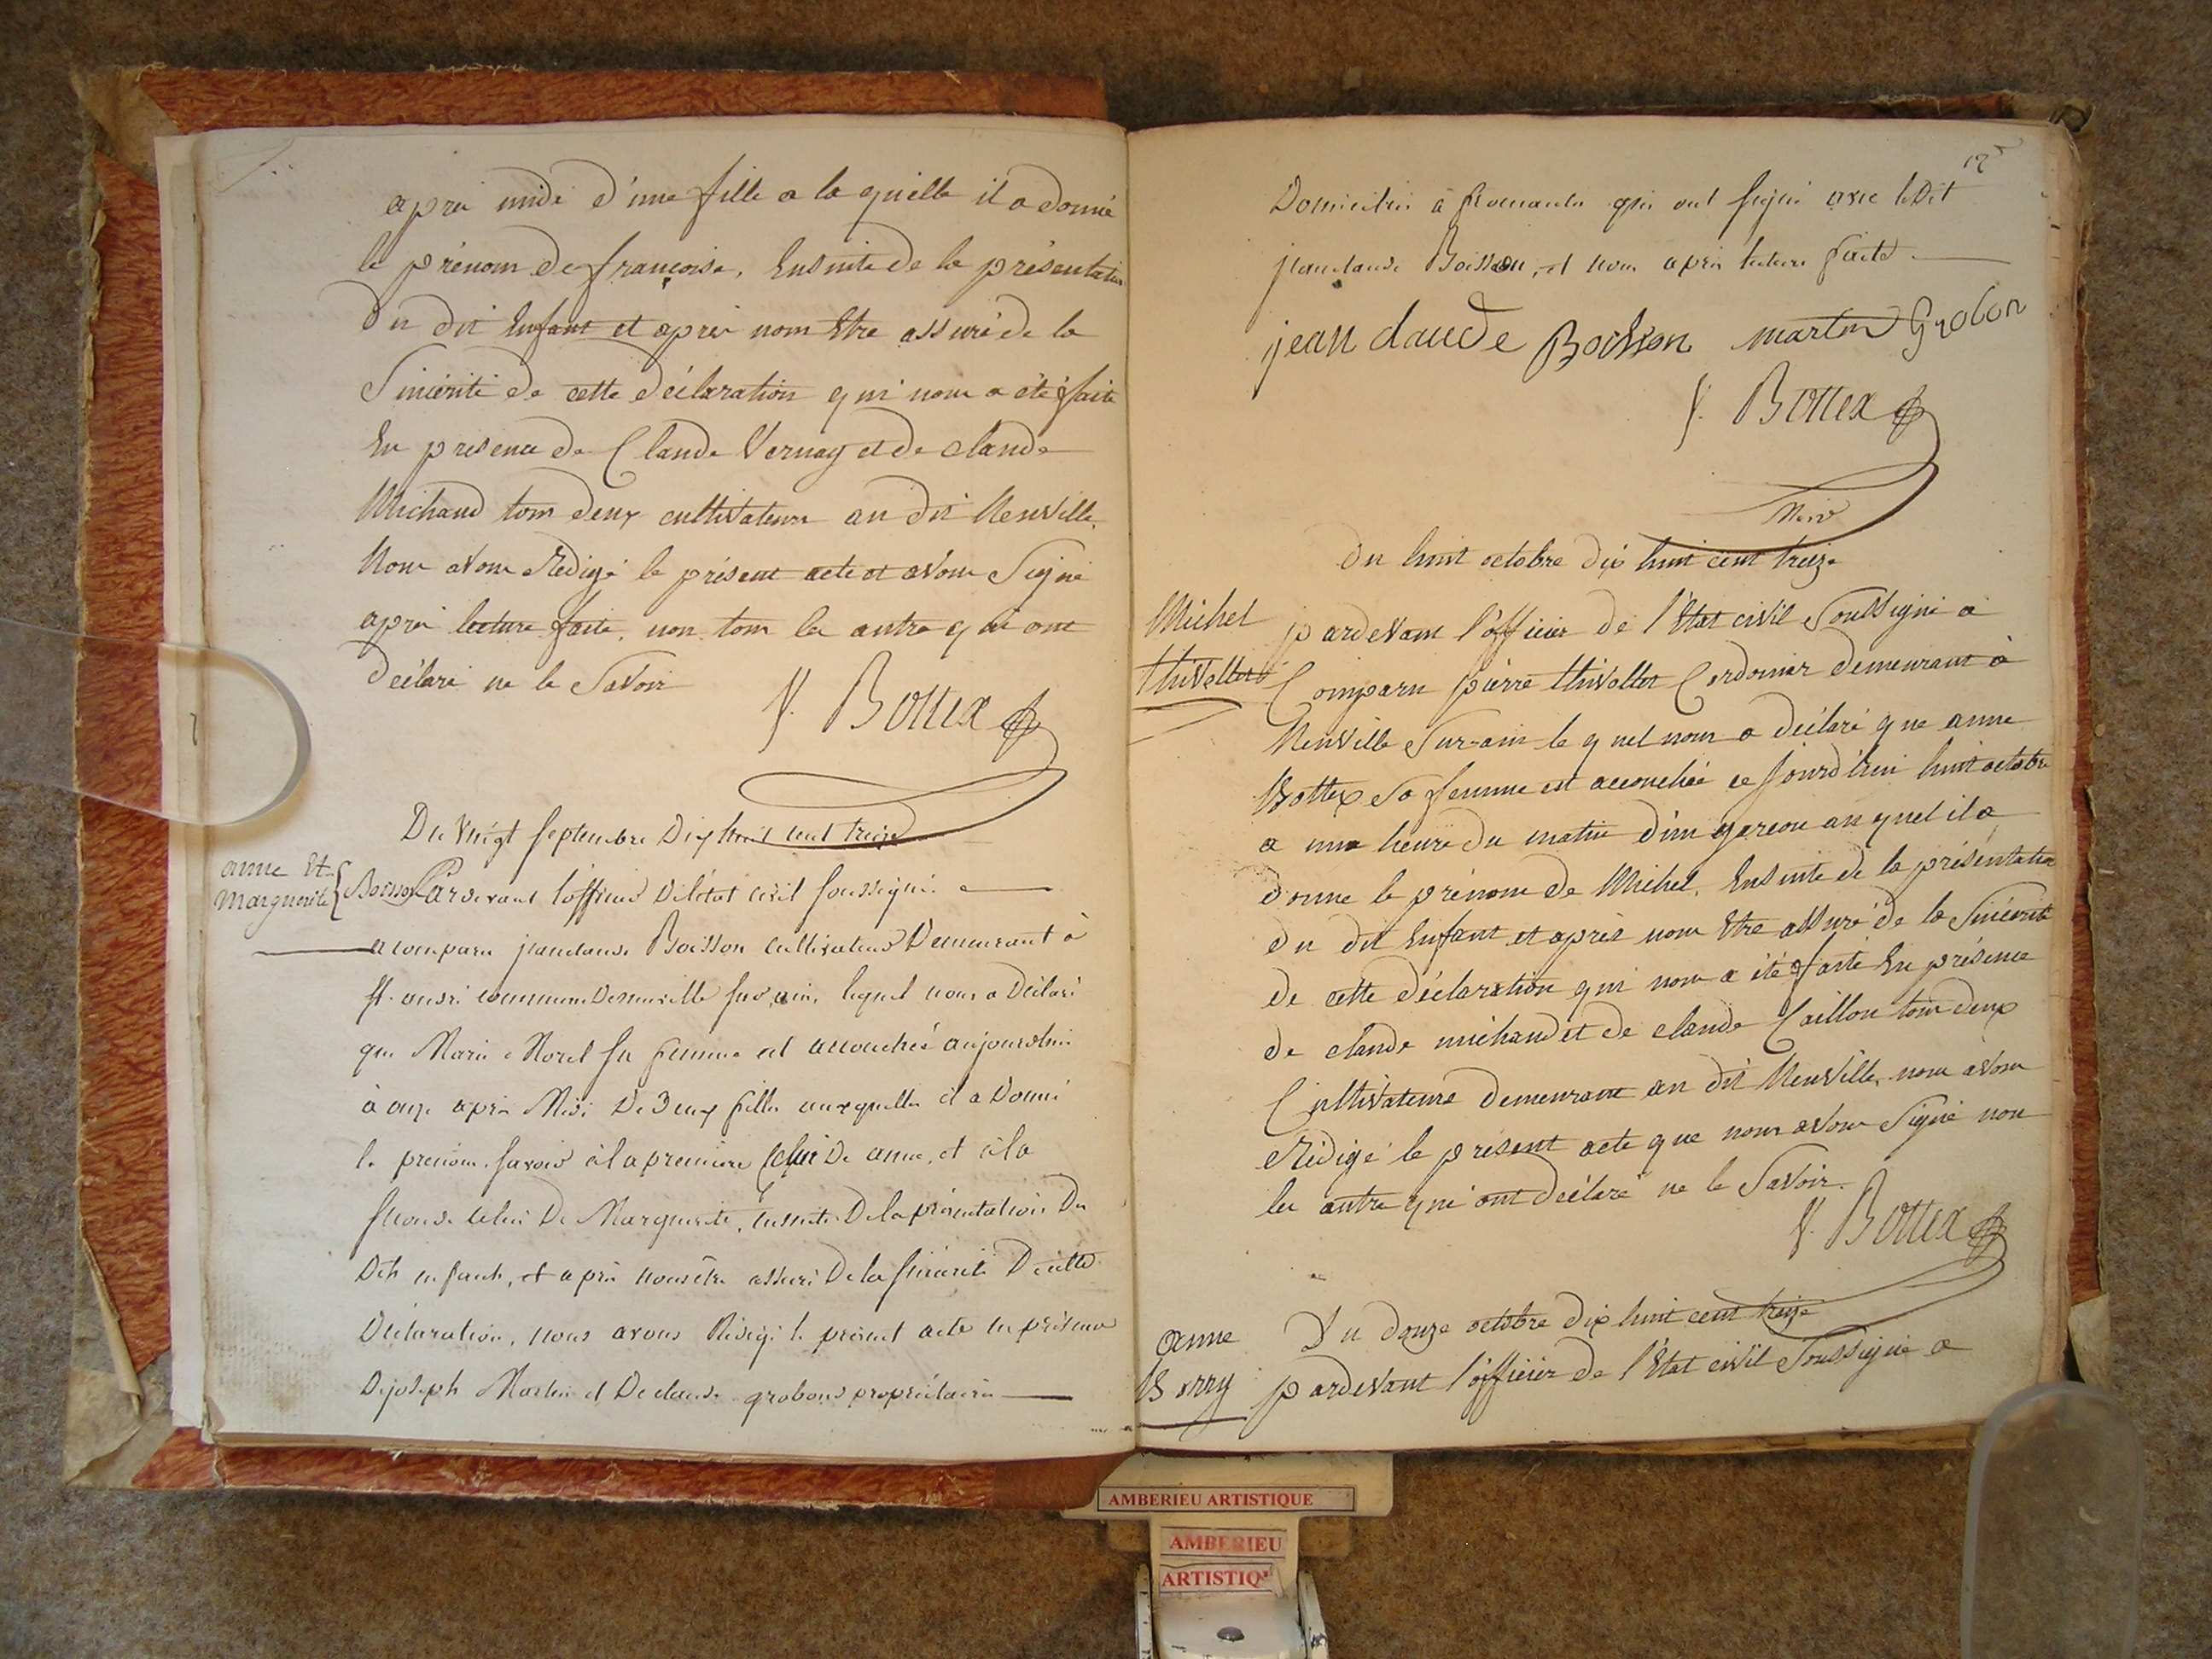 apres midi d'une fille a la quelle il a donné
le prénom de françoise. Ensuite de la présentation
du dit Enfant et après nous Etre assuré de la
Sincérité de cette déclaration qui nous a été faite
En presence de Claude Vernay et de claude
Michaud tous deux cultivateurs au dit Neuville.
Nous avons Redigé le présent acte et avons Signé
après lecture faite, non tous les autres qui ont
déclaré ne le Savoir
J. Bottex
Du vingt septembre Dix huit cent treize
anne Et
marguerite Boisson
Pardevant l'officier De l'état civil soussigné
a comparu jean claude Boisson cultivateur Demeurant à
st. andré commune De neuville sur ain, lequel nous a Déclaré
que Marie Morel sa femme est accouchée aujourdhui
à onze après Midi De Deux filles auxquelles il a Donné
le prenom savoir à la premiere celui De anne, et à la
seconde celui De Marguerite, ensuite De la présentation Du
Dits enfants, et après nous être assuré De la sincérité De cette
Déclaration, nous avons Rédigé le présent acte en présence
De joseph Martin et De claude grobons propriétaires
12
Domiciliés à Romanèche qui ont signé avec le Dit
jean claude Boisson, et nous après lecture faite
jean claude Boisson martin Grobon
J. Bottex
Maire
Du huit octobre dix huit cent treize
Michel
thivollet
pardevant l'officier de l'Etat civil Soussigné a
Comparu pierre thivollet Cordonier demeurant à
Neuville Sur-ain le quel nous a déclaré que anne
Bottex Sa femme est accouchée ce jourd'hui huit octobre
a une heure du matin d'un garcon au quel il a
donne le prénom de Michel. Ensuite de la présentation
du dit Enfant et après nous Etre assuré de la Sincérité
de cette déclaration qui nous a été faite En présence
de claude michaud et de claude Caillon tous deux
Cultivateurs demeurant au dit Neuville. nous avons
Rédigé le présent acte que nous avons Signé non
les autres qui ont déclaré ne le Savoir.
J. Bottex
anne
Borry
Du douze octobre dix huit cent treize
pardevant l'officier de l'Etat civil Soussigné a
AMBERIEU ARTISTIQUE
AMBERIEU
ARTISTIQ